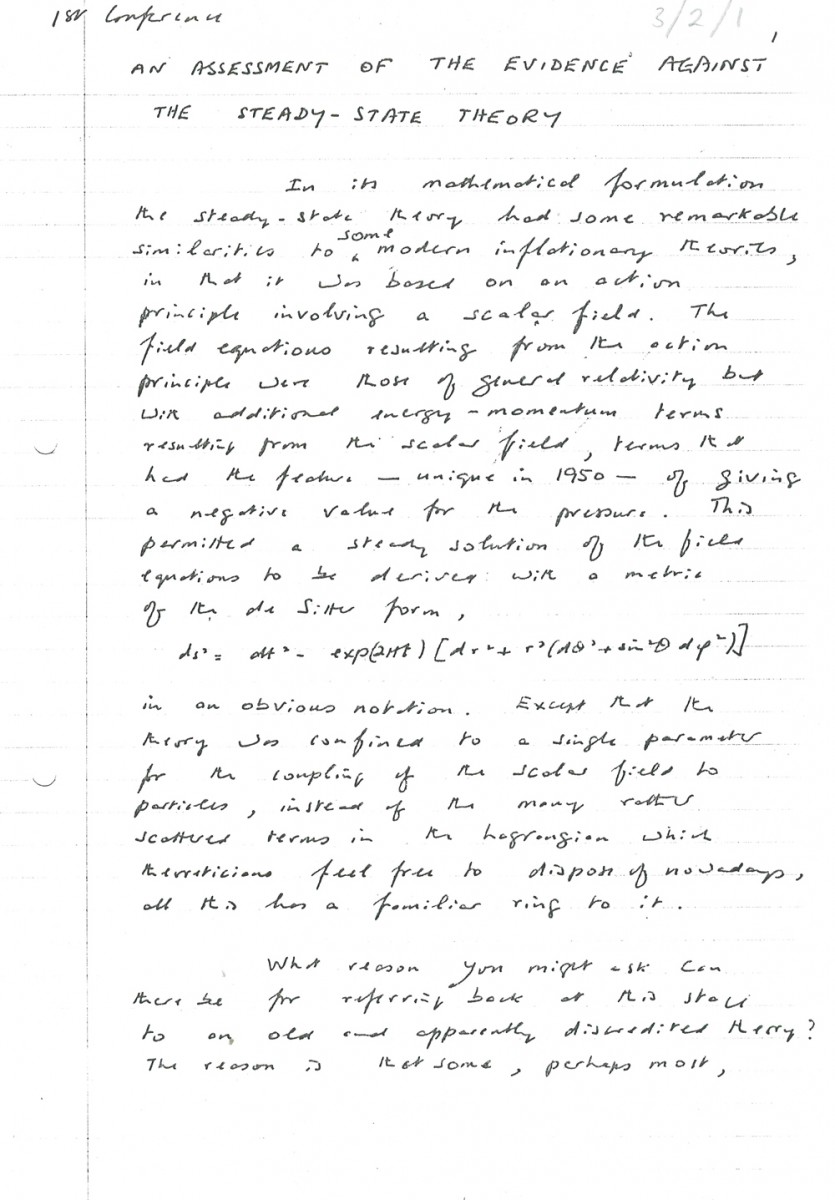 1st Conference
3/2/1
1
AN ASSESSMENT OF THE EVIDENCE AGAINST
THE STEADY-STATE THEORY
In its mathematical formulation
the steady-state theory had some remarkable
similarities to some modern inflationary theories,
in that it was based on an action
principle involving a scalar field. The
field equations resulting from the action
principle were those of general relativity but
with additional energy-momentum terms
resulting from the scalar field, terms that
had the feature — unique in 1950 — of giving
a negative value for the pressure. This
permitted a steady solution of the field
equations to be derived with a metric
of the de Sitter form,
ds² = dt² - exp(2Ht) [dr² + r²(dθ² + sin²θ dφ²)]
in an obvious notation. Except that the
theory was confined to a single parameter
for the coupling of the scalar field to
particles, instead of the many rather
scattered terms in the Lagrangian which
theoreticians feel free to dispose of nowadays,
all this has a familiar ring to it.
What reason you might ask can
there be for referring back at this stage
to an old and apparently discredited theory?
The reason is that some, perhaps most,